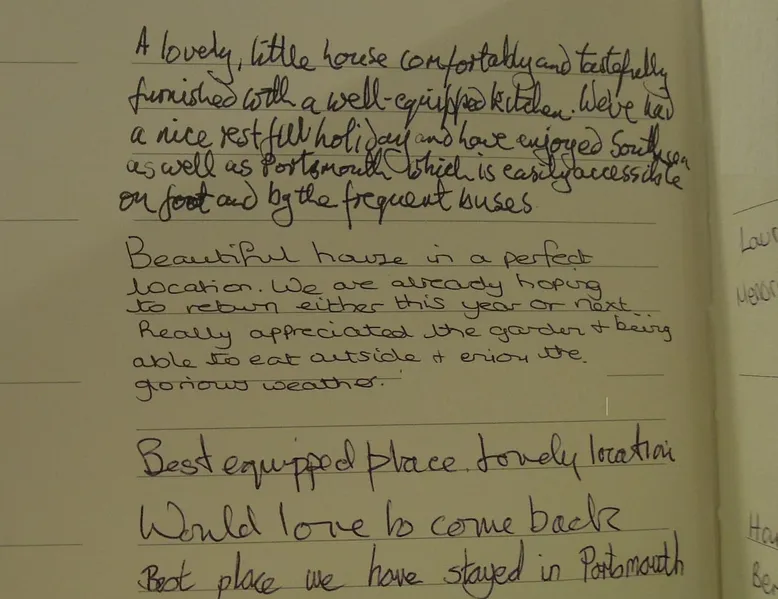 A lovely, little house comfortably and tastefully
furnished with a well-equipped kitchen. We've had
a nice restfull holiday and have enjoyed Southsea
as well as Portsmouth which is easily accessible
on foot and by the frequent buses
Beautiful house in a perfect
location. We are already hoping
to return either this year or next.
Really appreciated the garden + being
able to eat outside + enjoy the
glorious weather.
Best equipped place. Lovely location
Would love to come back
Best place we have stayed in Portsmouth